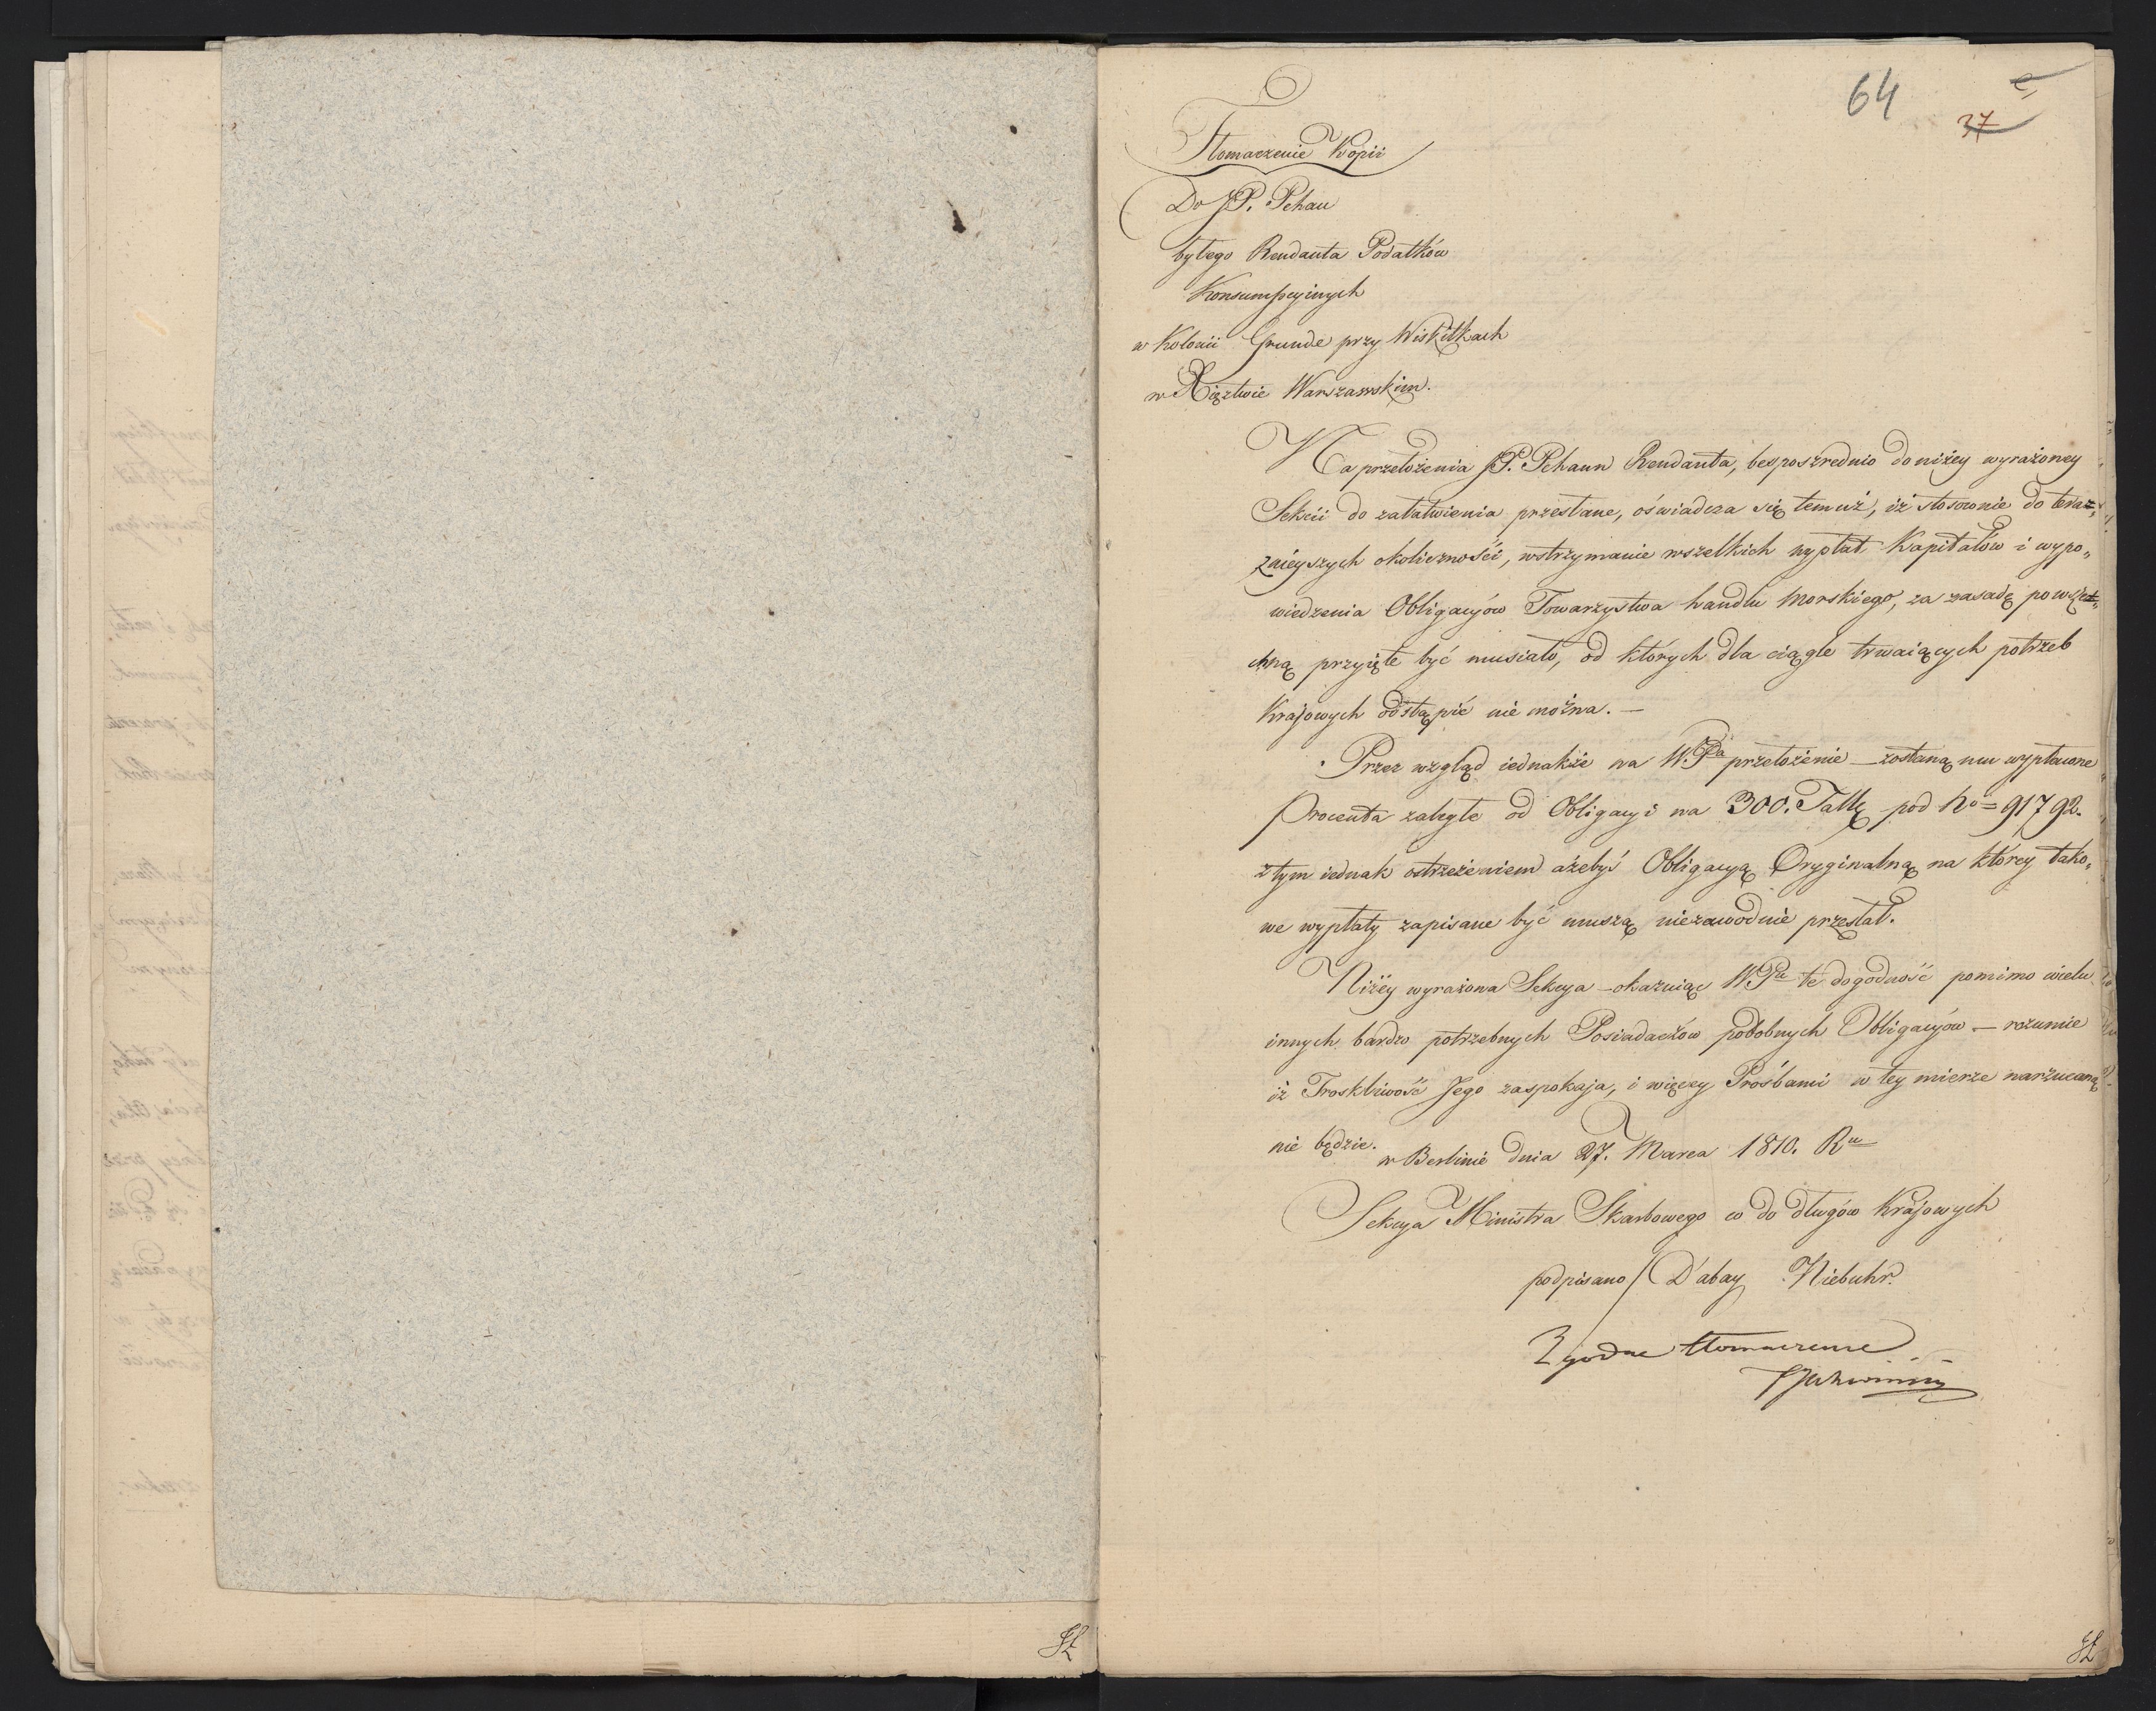 64
37
Tłomaczenie Kopii
Do JP. Pehau
byłego Rendanta Podatków
Konsumpcyinych
w Kolonii Grunde przy Wiskitkach
w Xięztwie Warszawskim.
Na przełożenia JP. Pehaun Rendanta, besposzrednio do niżey wyrażoney
Sekcii do załatwienia przesłane, oświadcza się temuż, iż stosownie do teraz„
znieyszych okoliczności, wstrzymanie wszelkich wypłat Kapitałów i wypo„
wiedzenia Obligacyów Towarzystwa handlu Morskiego, za zasadę powszet„
chną przyięte być musiało, od których dla ciągle trwaiących potrzeb
Krajowych odstąpić nie można. —
Przez wzgląd iednakże na W.Pa przełożenie — zostaną mu wypłacone
Procenta zaległe od Obligacyi na 300. Tall. pod No = 91792.
z tym iednak ostrzeżeniem ażebyś Obligacyą Oryginalną na którey tako„
we wypłaty zapisane być muszą niezawodnie przesłał.
Niżey wyrażona Sekcya — okazuiąc W.Pu tę dogodność pomimo wielu
innych bardzo potrzebnych Posiadaczów podobnych Obligacyów — rozumie
iż Troskliwość Jego zaspokaja, i więcey Prośbami w tey mierze narzucaną
nie będzie.
w Berlinie dnia 27. Marca 1810. Ru
Sekcya Ministra Skarbowego co do długów Krajowych
podpisano / D'abay Niebuhr.
Zgodne tłomaczenie